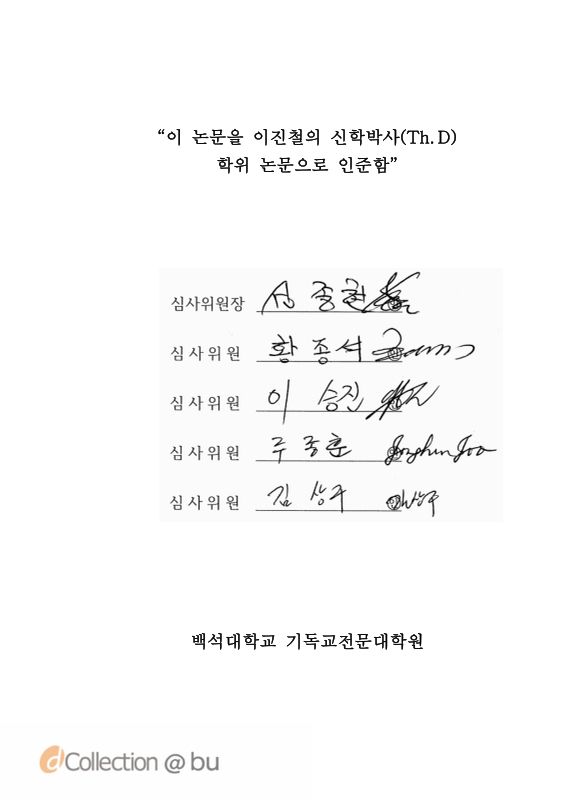 “이 논문을 이진철의 신학박사(Th.D)
학위 논문으로 인준함”
심사위원장
심사위원 황종석
심사위원 이승진
심사위원 주종훈 Jonghun Joo
심사위원 김상구
백석대학교 기독교전문대학원
dCollection @ bu